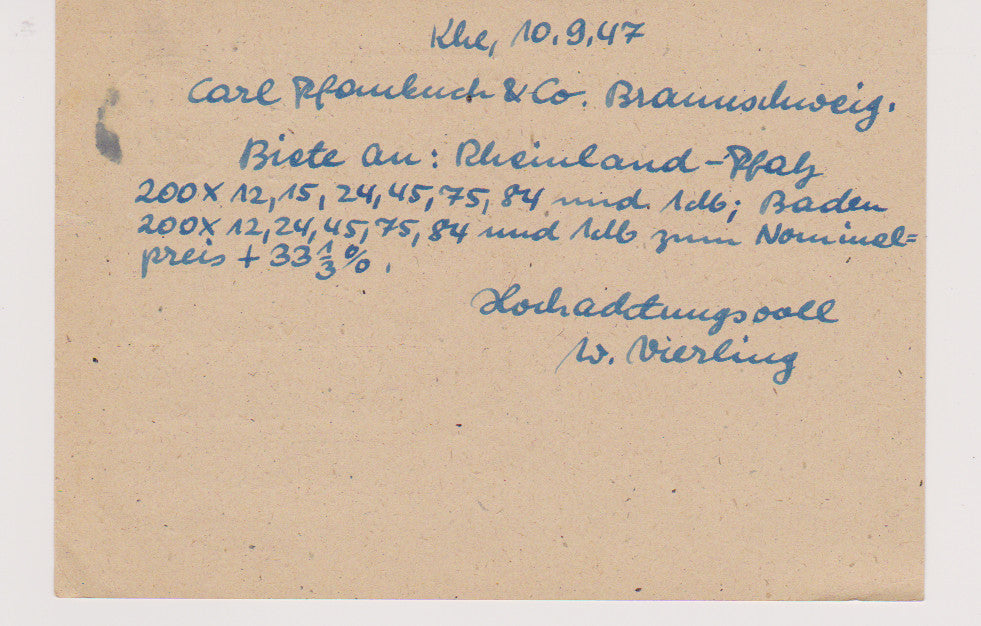 Khe, 10.9.47
Carl Pfankuch & Co. Braunschweig.
Biete an: Rheinland-Pfalz
200 X 12, 15, 24, 45, 75, 84 und 1 M; Baden
200 X 12, 24, 45, 75, 84 und 1 M zum Nominal=
preis + 33 1/3 %.
Hochachtungsvoll
W. Vierling